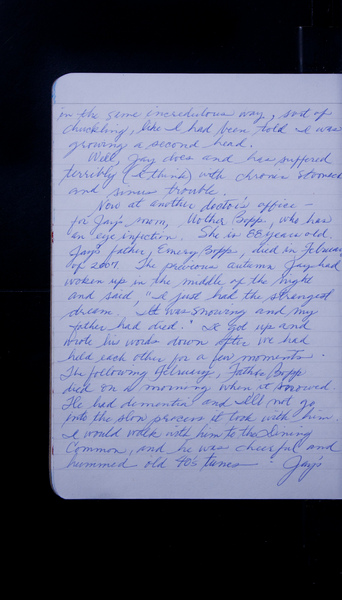 in the same incredulous way, sort of
chuckling, like I had been told I was
growing a second head.
Well, Jay does and has suffered
terribly (I think) with chronic stomach
and sinus trouble.
Now at another doctor's office –
for Jay's mom, Mother Bopp, who has
an eye infection. She is 88 years old.
Jay's father, Emery Bopp, died in February
of 2007. The previous autumn Jay had
woken up in the middle of the night
and said, "I just had the strangest
dream. It was snowing and my
father had died." I got up and
wrote his words down after we had
held each other for a few moments.
The following February, Father Bopp
died on a morning when it snowed.
He had dementia and I'll not go
into the slow process it took with him.
I would walk with him to the Dining
Common, and he was cheerful and
hummed old 40's tunes. Jay's